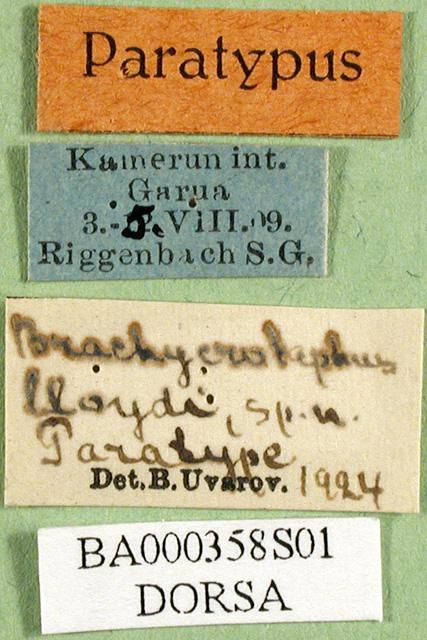 Paratypus
Kamerun int.
Garua
3.-5.VIII.09.
Riggenbach S.G.
Brachycrotaphus
lloydi, sp.n.
Paratype
Det. B. Uvarov. 1924
BA000358S01
DORSA